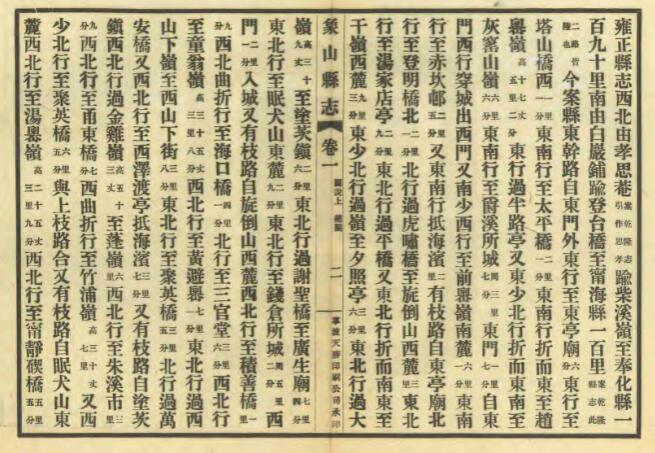 雍正縣志西北由孝思菴案乾隆志引作思孝踰柴溪嶺至奉化縣一
百九十里南由白巖鋪踰登台橋至甯海縣一百里案乾隆縣志此
二路皆陸也今案縣東幹路自東門外東行至東亭廟六分東行至
塔山橋西一分東南行至太平橋一里二分東南行折而東至趙
嶴嶺高十二丈五里二分東行過半路亭又東少北行折而東南至
灰窰山嶺六分東南行至爵溪所城三里七分東門一里一分自東
門西行穿城出西門又南少西行至前嶴嶺南麓一里六分東南
行至赤坎邨二里五分又東南行抵海濱二里有枝路自東亭廟北
行至登明橋北一里二分北行過虎嘯橋至旋倒山西麓三里東北
行至湯家店亭二里九分東北行過平橋又東北行折而南東至
干嶺西麓三里九分東少北行過嶺至夕照亭三里六分東北行過大
象山縣志
卷一
圖說上 總圖
二
寧波天勝印刷公司承印
嶺高三十九丈至塗茨鎭六里二分東北行過謝聖橋至廣生廟七里四分
東北行至眠犬山東麓九里二分東北行至錢倉所城周五里二分西
門二里一分入城又有枝路自旋倒山西麓西北行至積善橋一里
九分西北曲折行至海口橋四里一分北行至三官堂三里六分西北行
至童翁嶺高三十五丈三里八分西北行至黃避嶴七里一分東北行過西
山下嶺至西山下街三里八分東北行至聚英橋三里五分北行過萬
安橋又西北行至西澤渡亭抵海濱三里七分又有枝路自塗茨
鎭西北行過金雞嶺高五十三丈至蓬嶺六里西北行至朱溪市三里
九分西北行至甬東橋七里六分西曲折行至竹浦嶺高三十丈七里又西
少北行至聚英橋六里五分與上枝路合又有枝路自眠犬山東
麓西北行至湯嶴嶺高二十五丈三里九分西北行至甯靜碶橋五里五分